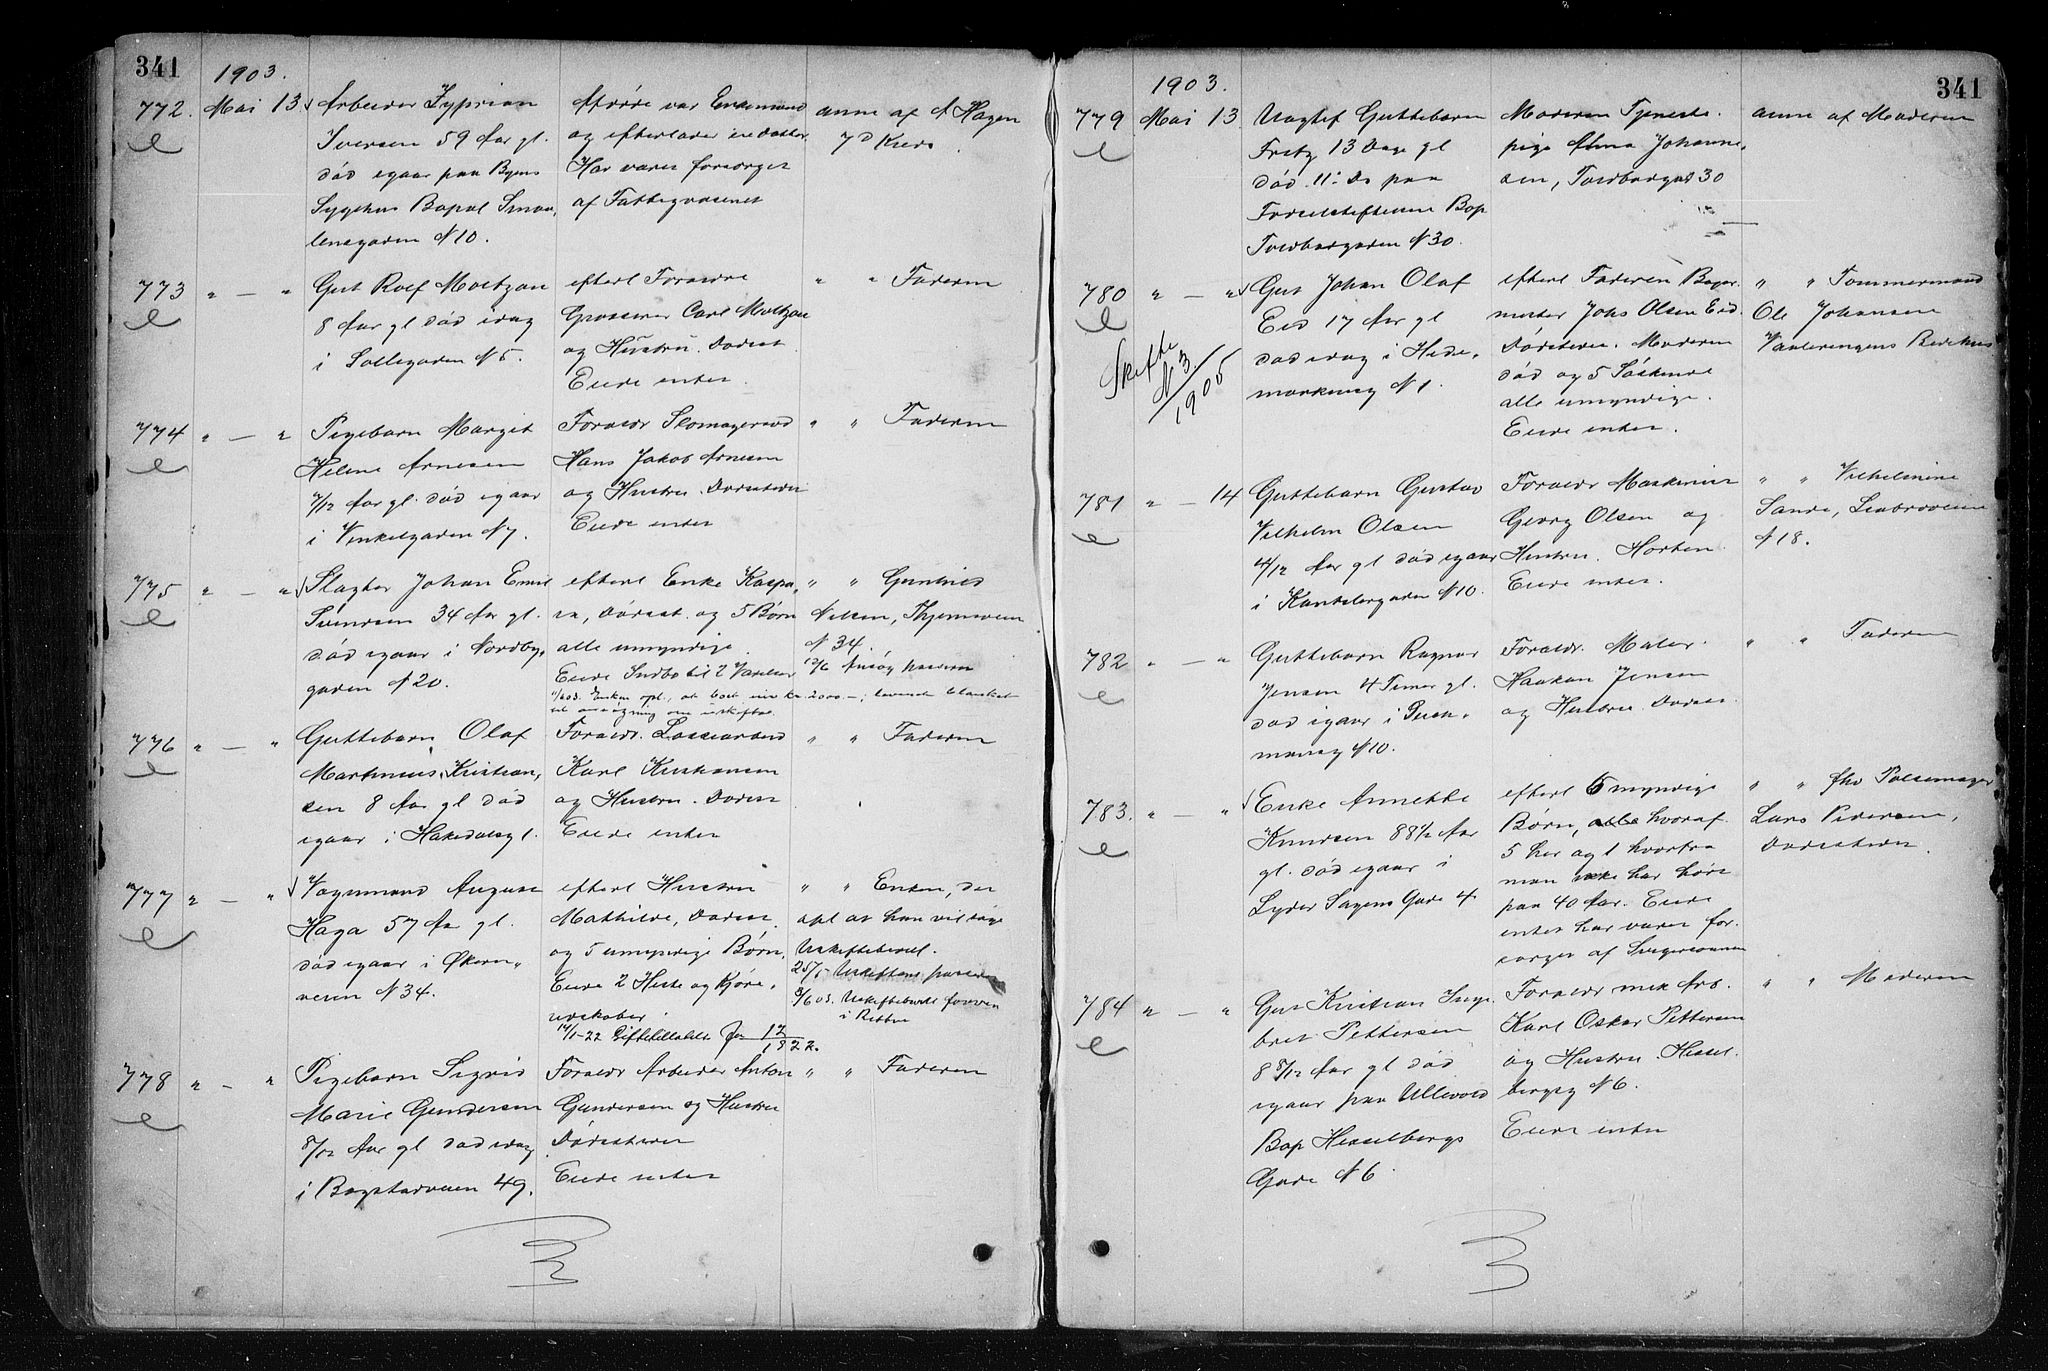 341
1903.
772. Mai 13
Arbeider Zyprian
Iversen 59 Aar gl.
død igaar paa Byens
Sygehus Bopæl Smaa-
lensgaden N 10.
Afdøde var Enkemand
og efterlader en datter
Har været forsørget
af Fattigvæsenet
anm af A Hagen
7d Kreds
773 " — "
Gut Rolf Moltzau
8 Aar gl død idag
i Solligaden N 5.
efterl Forældre
Grosserer Carl Moltzau
og Hustru. Dødsst
Eiede intet
" " Faderen
774 " — "
Pigebarn Margit
Helene Arnesen
7/12 Aar gl. død igaar
i Vinkelgaden N 7.
Forældr Skomagersvd
Hans Jakob Arnesen
og Hustru. Dødsstedet
Eiede intet
" " Faderen
775 " — "
Slagter Johan Emil
Svendsen 34 Aar gl.
død igaar i Nordby-
gaden N 20.
efterl Enke Kaspa-
ra, Dødsst og 5 Børn
alle umyndige
Eiede Indbo til 2 Værelser
" " Gunhild
Nilsen, Thjemsveien
N 34.
776 " — "
Guttebarn Olaf
Martinius Kristian-
sen 8 Aar gl død
igaar i Hakedalsgt.
Forældr. Lossearbeid
Karl Kristiansen
og Hustru. Dødsst
Eiede intet
" " Faderen
777 " — "
Vognmand August
Haga 57 Aar gl.
død igaar i Økern-
veien N 34.
efterl Hustru
Mathilde, Dødsst
og 5 umyndige Børn,
Eiede 2 Heste og Kjøre-
redskaber
14/1-22 Giftetilladelse Jnr 12/1922.
" " Enken, der
opl at hun vil søge
Uskiftebevil.
778 " — "
Pigebarn Sigrid
Marie Gundersen
8/12 Aar gl død idag
i Bogstadveien 49.
Forældr Arbeider Anton
Gundersen og Hustru
Dødsstedet
Eiede intet
" " Faderen
341
1903.
779 Mai 13
Uægtef Guttebarn
Fritz 13 Dage gl
død 11. Ds paa
Fødselsstiftelsen Bop
Toldbodgaden N 30.
Moderen Tjeneste-
pige Alma Johanne-
sen, Toldbodgad 30
anm af Moderen
780 " — "
Skifte
N 3/1905
Gut Johan Olaf
Eid 17 Aar gl
død idag i Hede-
markensg N 1.
efterl Faderen Bager-
mester Johs Olsen Eid.
Dødstedet. Moderen
død og 5 Søskende
alle umyndige.
Eiede intet.
" " Tømmermand
Ole Johansen
Vaalerengens Bedehus
781 " — 14
Guttebarn Gustav
Vilhelm Olsen
4/12 Aar gl død igaar
i Kanslergaden N 10.
Forældr Maskinist
Georg Olsen og
Hustru. Horten.
Eiede intet.
" " Vilhelmine
Sande,
N 18.
782 " — "
Guttebarn Ragnar
Jensen 4 Timer gl.
død igaar i Busk-
mansg N 10.
Forældr. Maler
Haakon Jensen
og Hustru. Dødsst.
" " Faderen
783. " — "
Enke Annette
Knudsen 88 1/2 Aar
gl. død igaar i
Lyder Sagens Gade 4
efterl 6 myndige
Børn, alle hvoraf
5 her og 1 hvorfra
man ikke har hørt
paa 40 Aar. Eiede
intet har været for-
sørget af Svigersønnen
" " fhv Pølsemager
Lars Pedersen,
Dødsstedet.
784 " — "
Gut Kristian Inge-
bret Pettersen
8 8/12 Aar gl død
igaar paa Ullevold
Bop Hesselbergs
Gade N 6.
Forældr mek Arb.
Karl Oskar Pettersen
og Hustru. Hessel-
bergsg N 6.
Eiede intet
" " Moderen